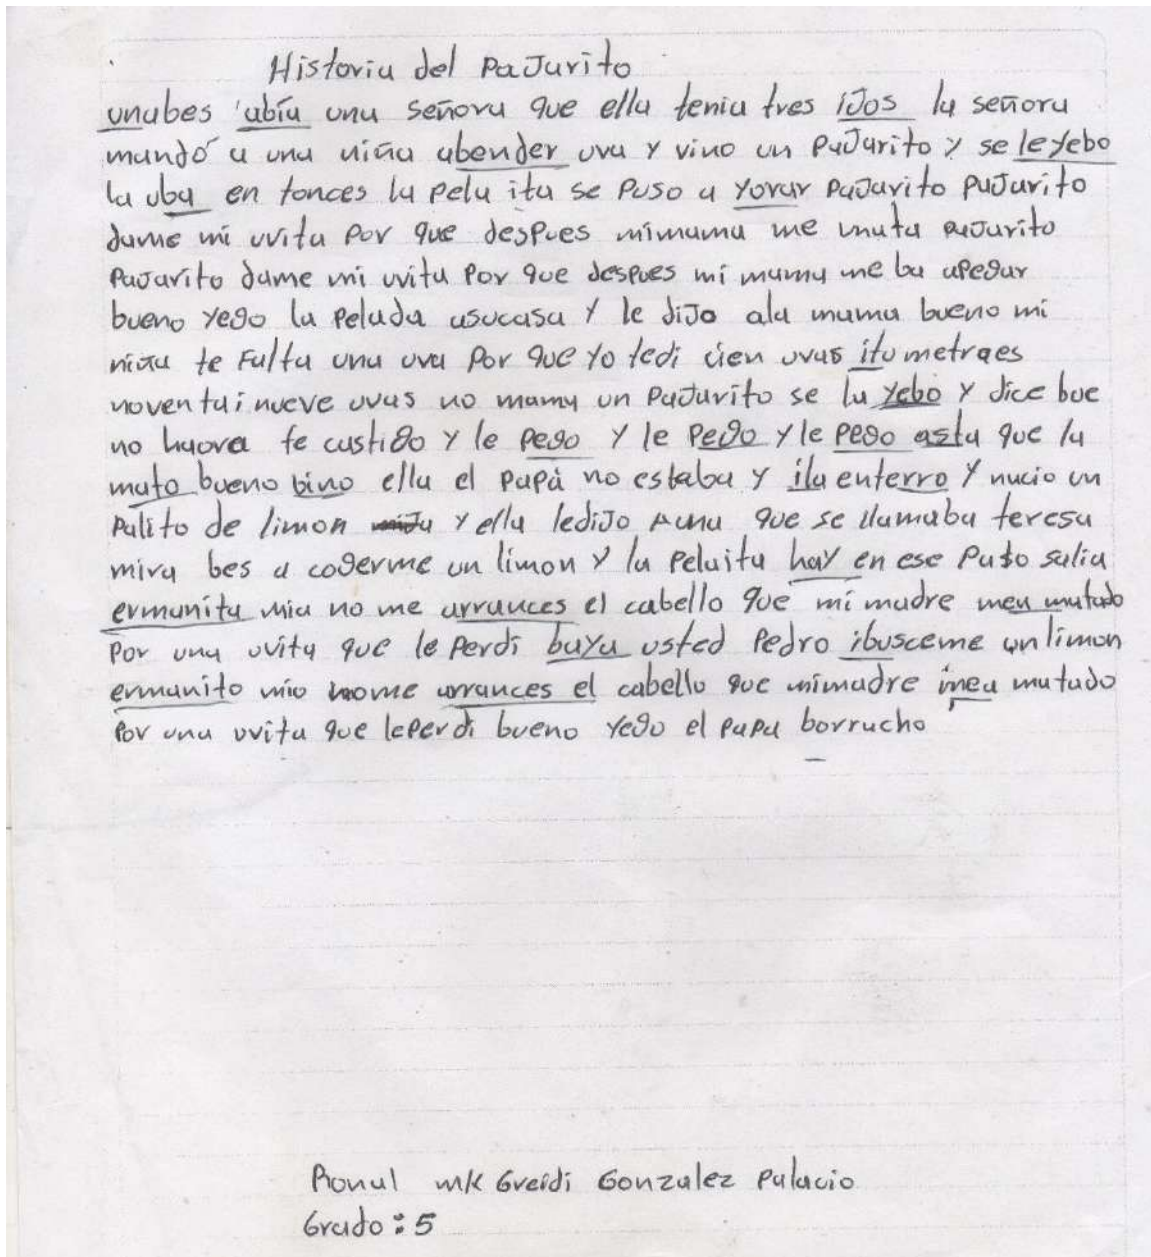 Historia del Pajarito
unabes abía una señora que ella tenia tres ijos la señora
mandó a una niña abender uva y vino un Pajarito y se leyebo
la uba en tonces la pela ita se puso a yorar pajarito pajarito
dame mi uvita por que despues mimama me mata pajarito
Pajarito dame mi uvita por que despues mi mama me ba apegar
bueno yego la pelada asucasa y le dijo ala mama bueno mi
niña te falta una uva por que yo tedi cien uvas itumetraes
noventai nueve uvas no mama un pajarito se la yebo y dice bue
no haora te castigo y le pego y le pego y le pego asta que la
mato bueno bino ella el papà no estaba y ila enterro y nacio un
palito de limon y ella ledijo Auna que se llamaba teresa
mira bes a cogerme un limon y la pelaita hay en ese pato salia
ermanita mia no me arrances el cabello que mi madre mea matado
por una uvita que le perdi baya usted Pedro ibusceme un limon
ermanito mio nome arrances el cabello que mimadre mea matado
por una uvita que leperdi bueno yego el papa borracho
Ronal mk Greidi Gonzalez Palacio
Grado: 5